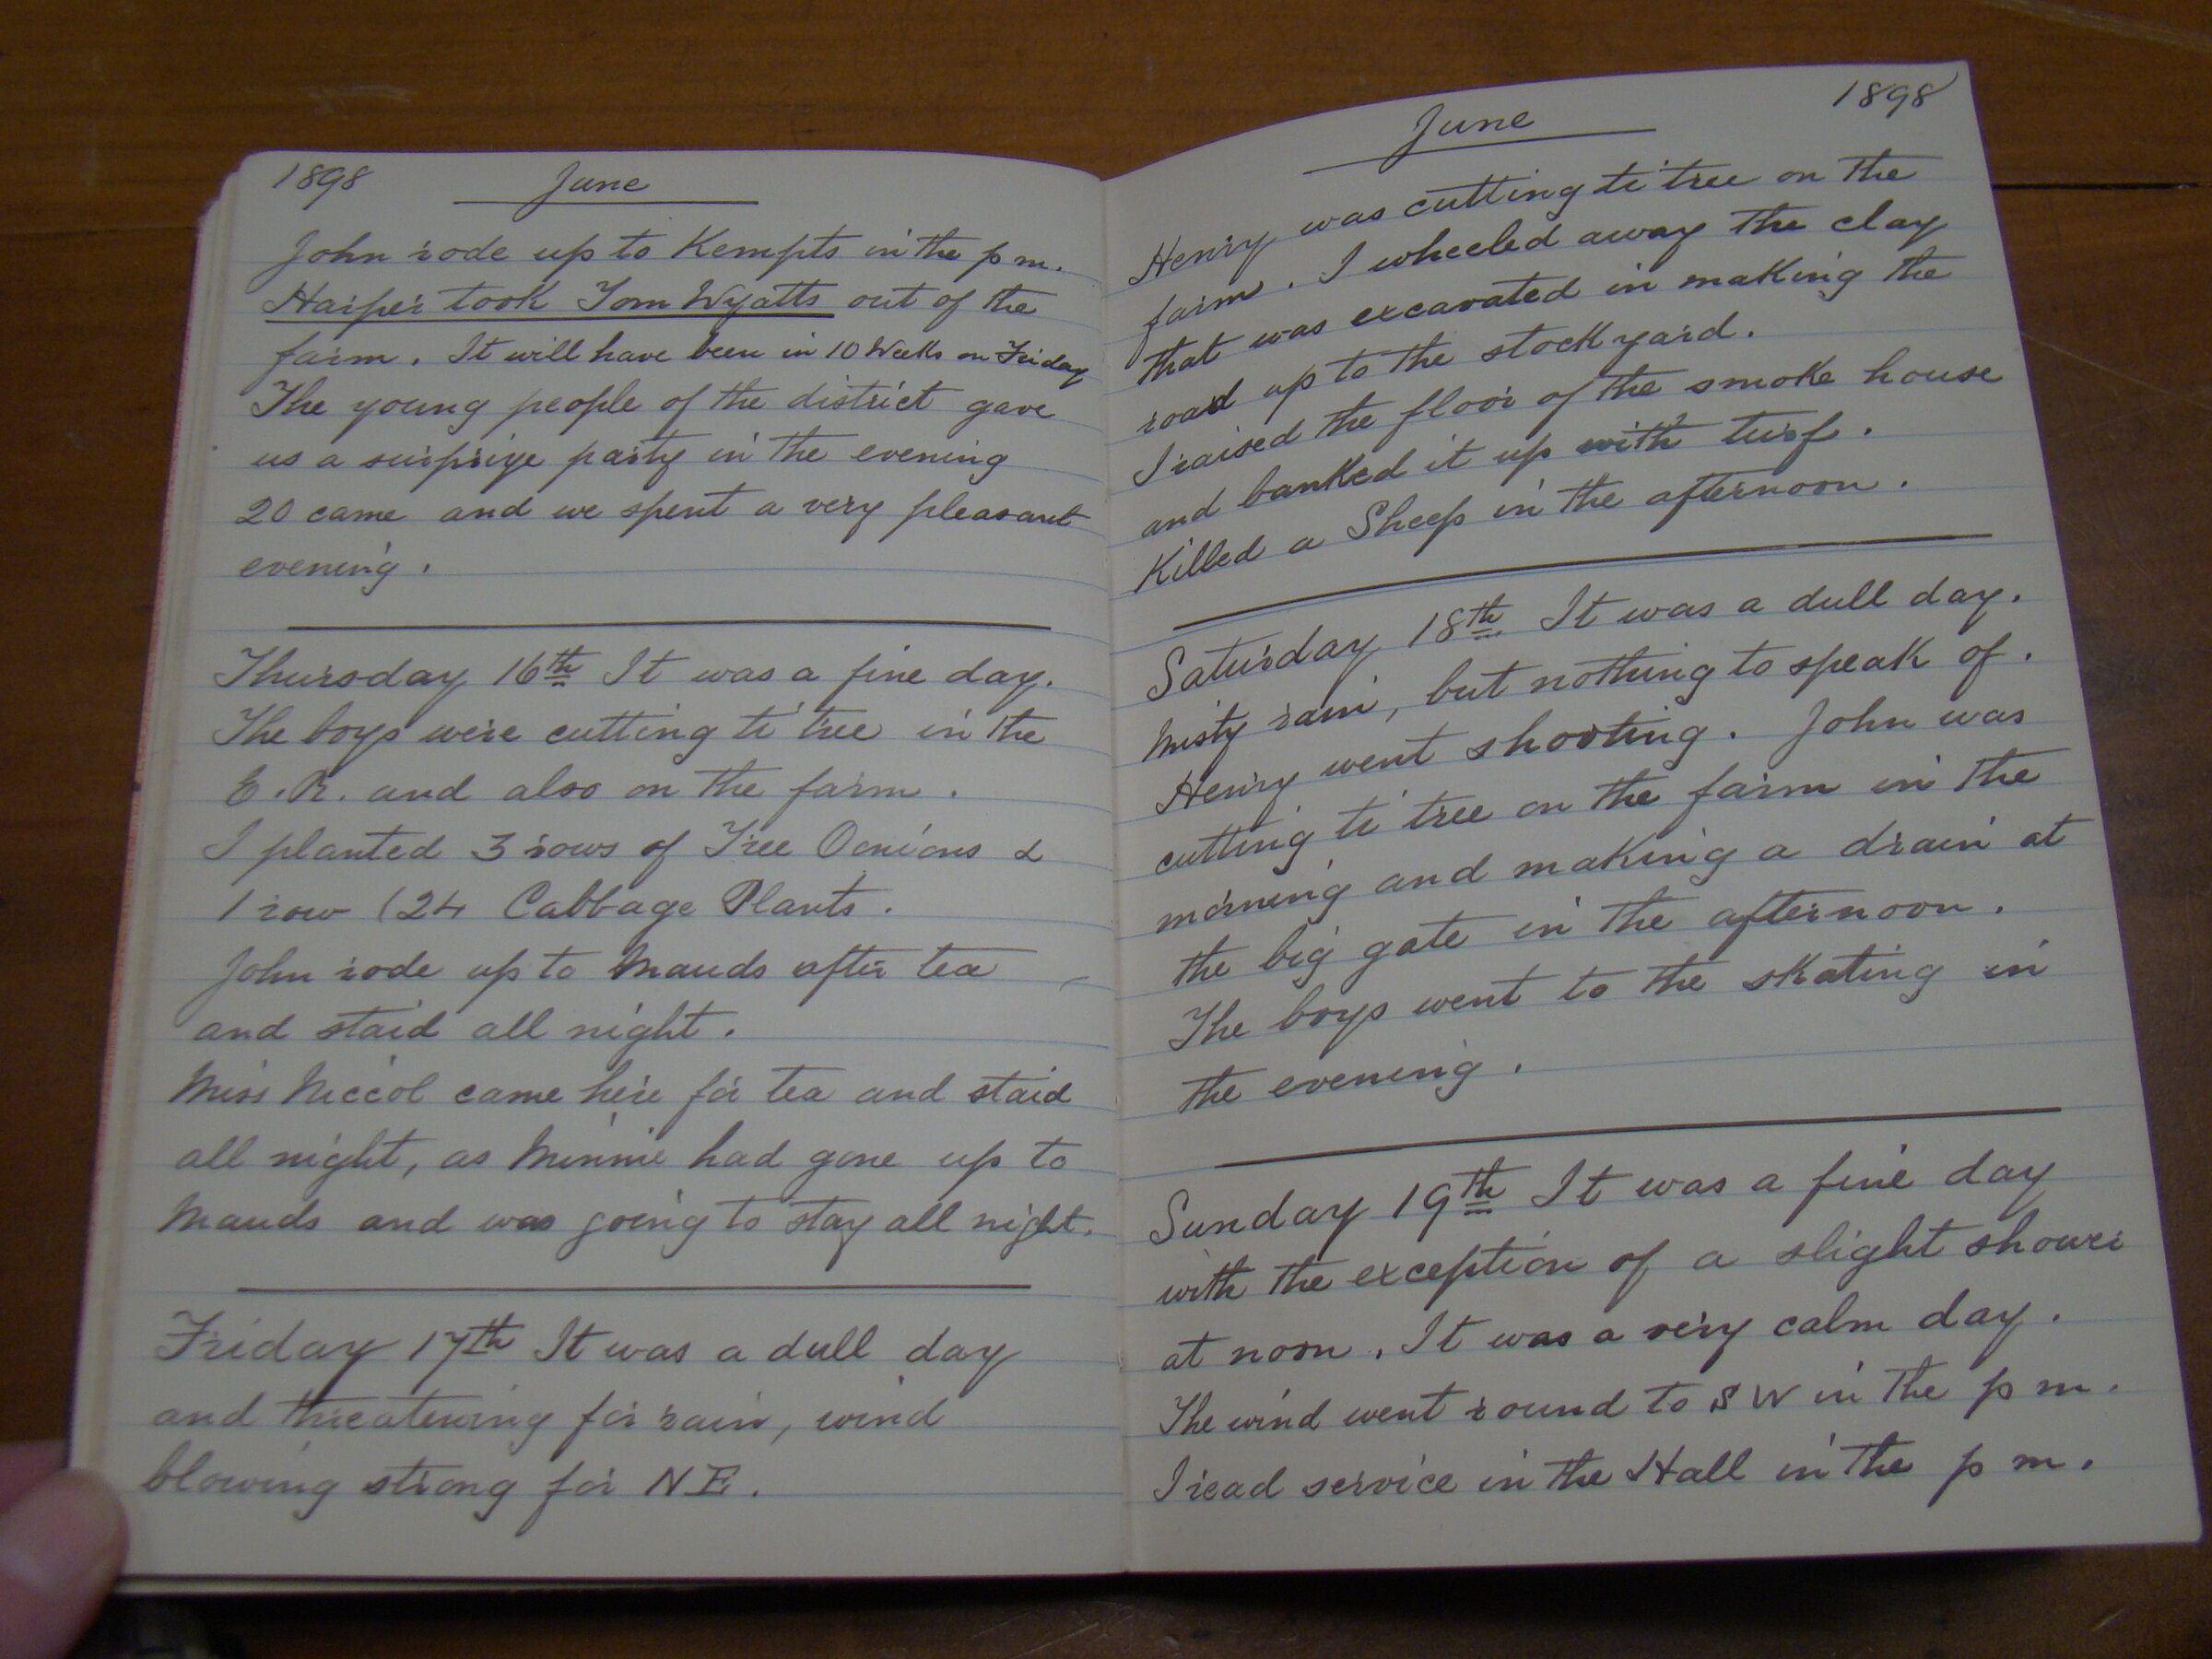 1898 June
John rode up to Kempts in the p m.
Harper took Tom Wyatts out of the
farm. It will have been in 10 Weeks on Friday
The young people of the district gave
us a surprize party in the evening
20 came and we spent a very pleasant
evening.
Thursday 16th It was a fine day.
The boys were cutting ti tree in the
E. R. and also on the farm.
I planted 3 rows of Tree Onions &
1 row (24 Cabbage Plants.
John rode up to Mauds after tea
and staid all night.
Miss Niccol came here for tea and staid
all night, as Minnie had gone up to
Mauds and was going to stay all night.
Friday 17th It was a dull day
and threatening for rain, wind
blowing strong for NE.
June 1898
Henry was cutting ti tree on the
farm. I wheeled away the clay
that was excavated in making the
road up to the stockyard.
I raised the floor of the smoke house
and banked it up with turf.
Killed a Sheep in the afternoon.
Saturday 18th It was a dull day.
Misty rain, but nothing to speak of.
Henry went shooting. John was
cutting ti tree on the farm in the
morning and making a drain at
the big gate in the afternoon.
The boys went to the skating in
the evening.
Sunday 19th It was a fine day
with the exception of a slight shower
at noon. It was a very calm day.
The wind went round to S W in the p m.
I read service in the Hall in the p m.